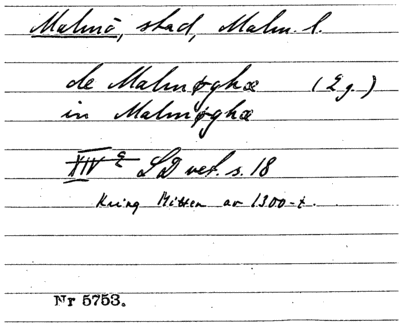 Malmö, stad, Malm. l.
de Malmøghæ (2 g.)
in Malmøghæ
XIV 2 LD vet. s. 18
Kring Mitten av 1300-t.
Nr 5753.